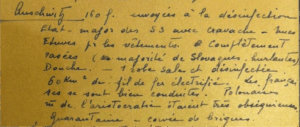 Auschwitz 160 f. envoyées à la désinfection
Etat-major des SS avec cravache - nues
Etuves pr les vêtements @ Complètement
rasées (en majorité de Slovaques, hurlantes)
Douche - 1 robe sale et désinfection
60 Km² du fil de fer électrifié - les français
ses se sont bien conduites. Polonaises
m de l'aristocratie étaient très obséquieuses
Quarantaine - corvée de briques.